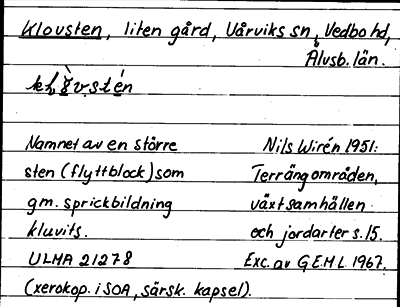 Klovsten, liten gård, Vårviks sn, Vedbo hd,
Älvsb. län.
Namnet av en större
sten (flyttblock) som
gm. sprickbildning
kluvits.
ULMA 21278
(xerokop. i SOA, särsk. kapsel).
Nils Wirén 1951:
Terrängområden,
växtsamhällen
och jordarter s. 15.
Exc. av G.E.M.L. 1967.